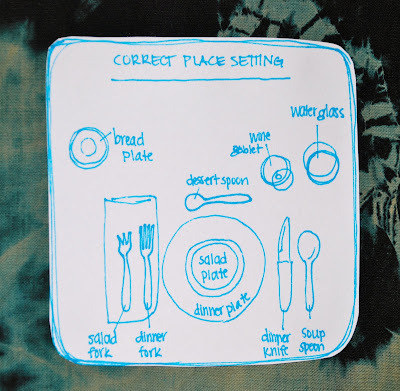 CORRECT PLACE SETTING
bread
plate
wine
goblet
water glass
dessert spoon
salad
plate
dinner plate
salad
fork
dinner
fork
dinner
knife
soup
spoon